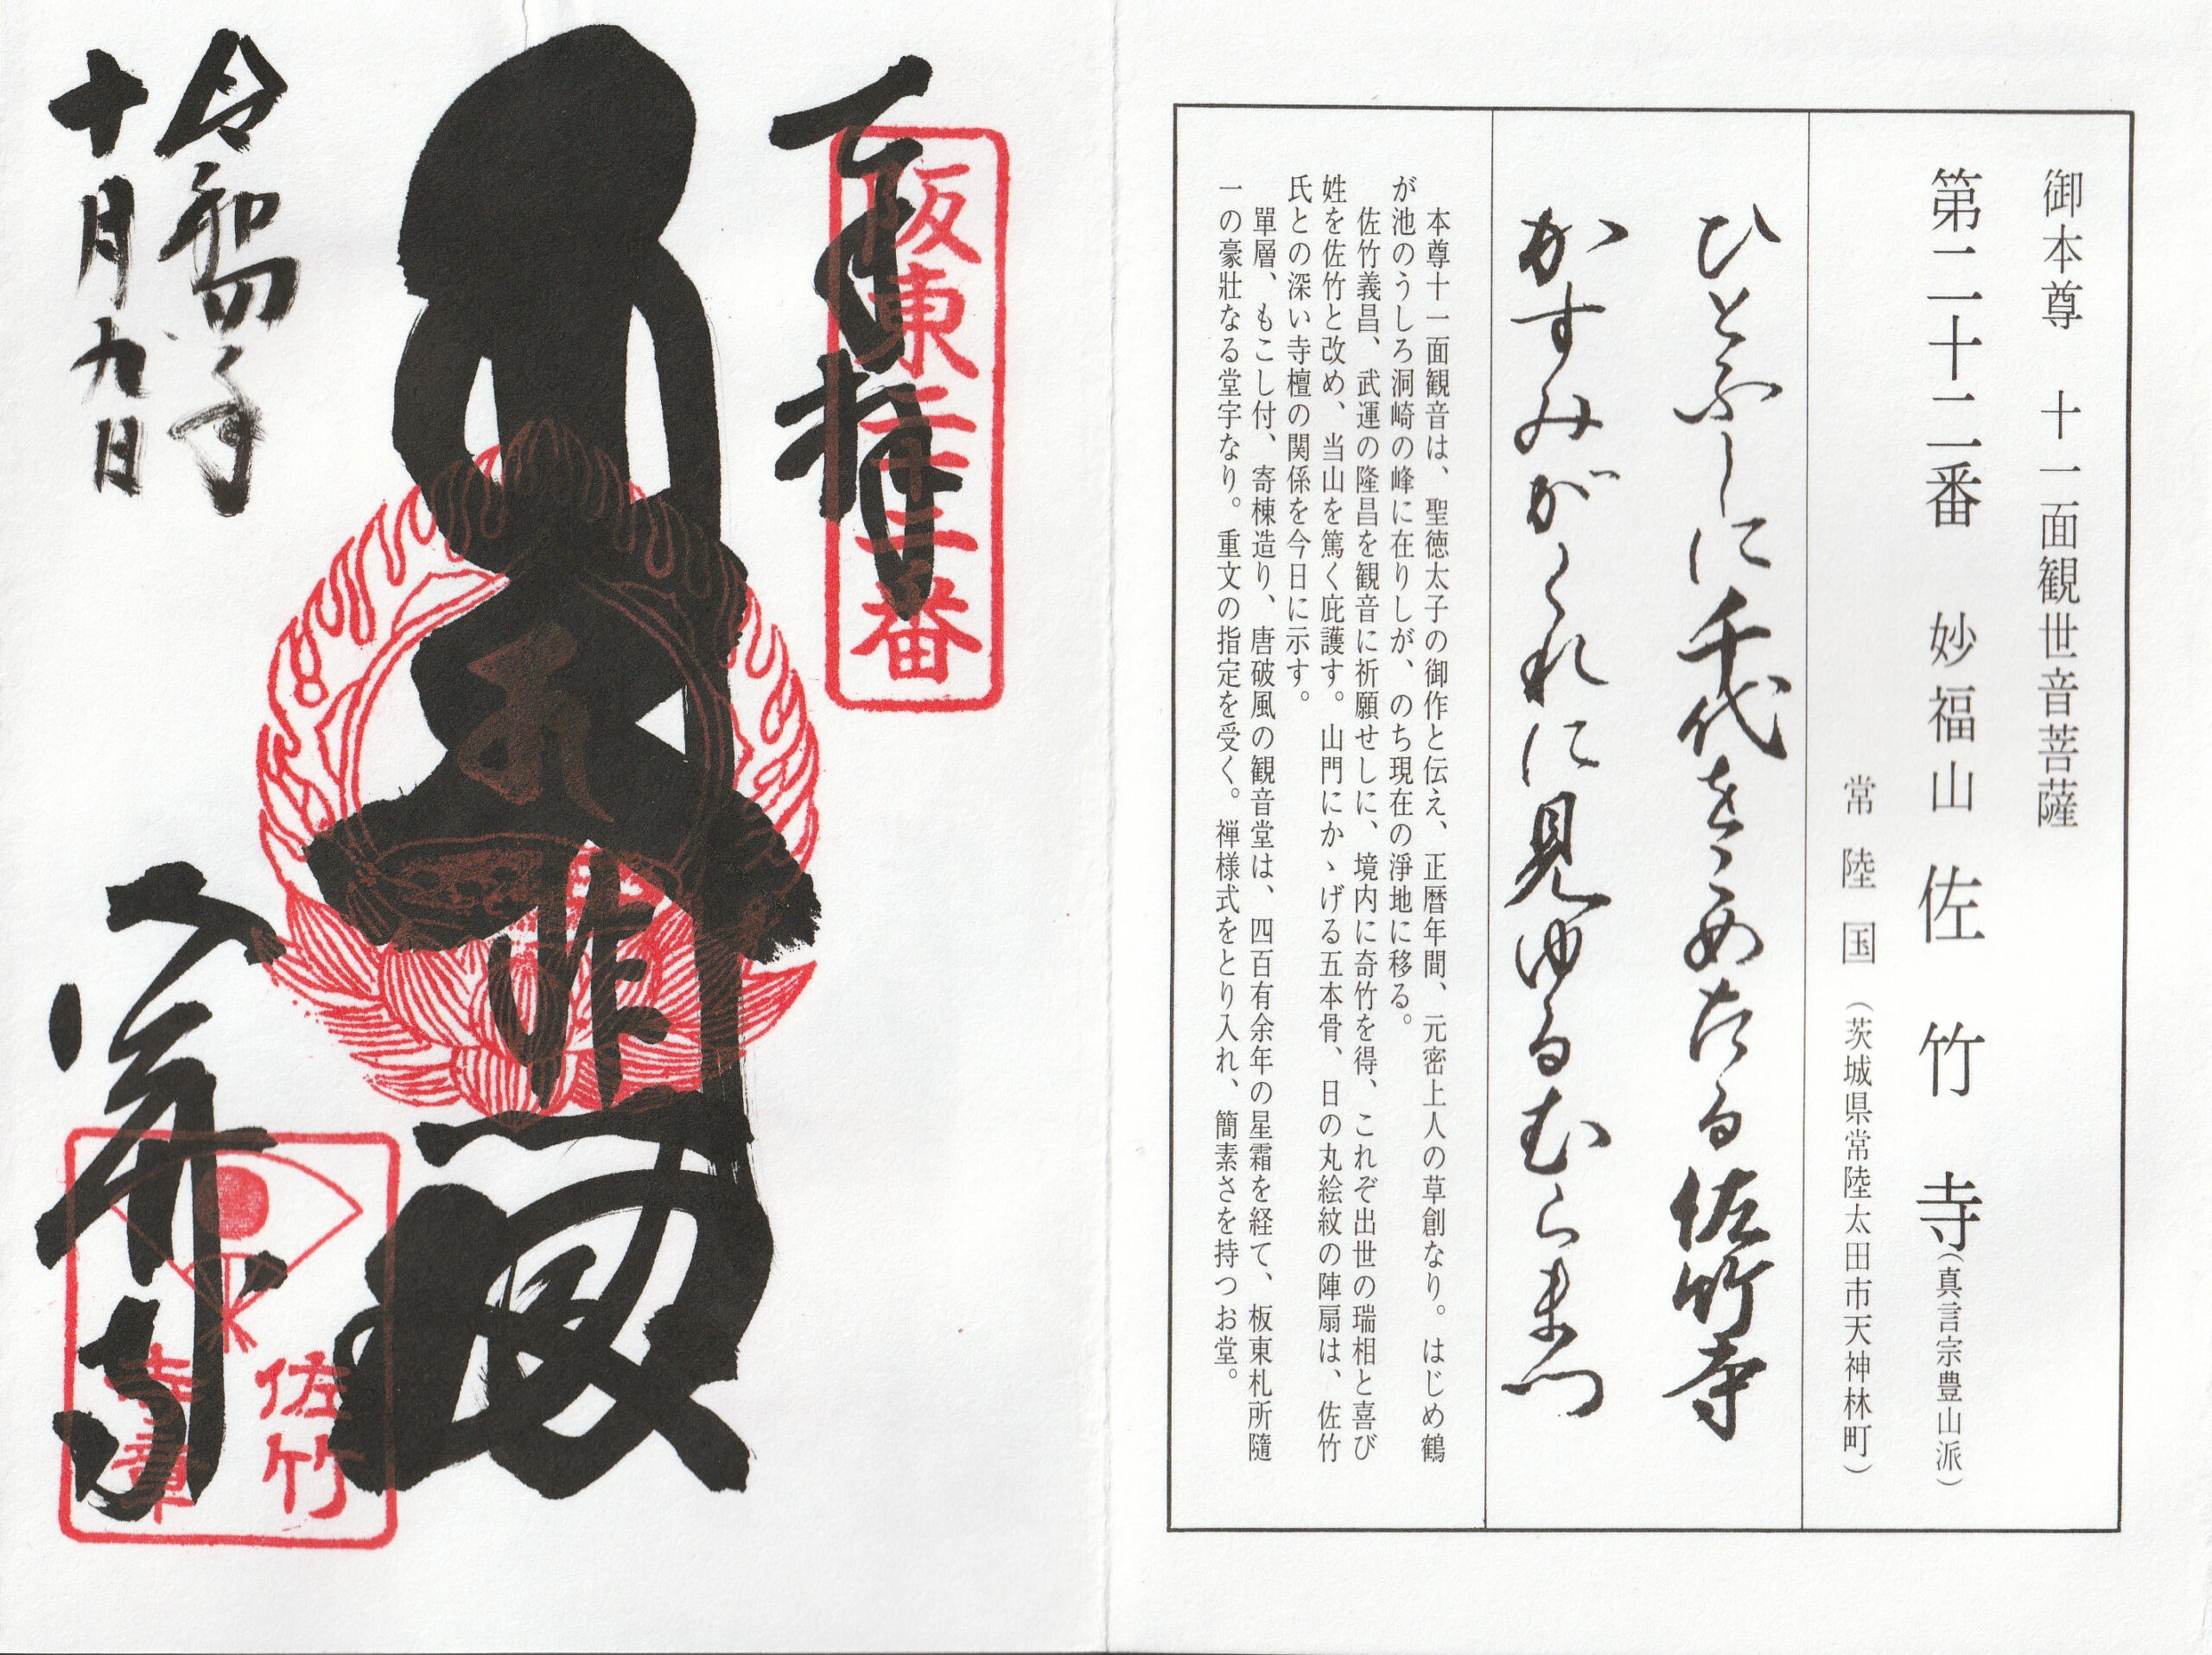 御本尊　十一面観世音菩薩
第二十二番　妙福山　佐竹寺（真言宗豊山派）
常陸国（茨城県常陸太田市天神林町）
ひとふしに千代をこめたる佐竹寺
かすみがくれに見ゆるむらまつ
本尊十一面観音は、聖徳太子の御作と伝え、正暦年間、元密上人の草創なり。はじめ鶴
が池のうしろ洞崎の峰に在りしが、のち現在の淨地に移る。
佐竹義昌、武運の隆昌を観音に祈願せしに、境内に奇竹を得、これぞ出世の瑞相と喜び
姓を佐竹と改め、当山を篤く庇護す。山門にかゝげる五本骨、日の丸絵紋の陣扇は、佐竹
氏との深い寺檀の関係を今日に示す。
單層、もこし付、寄棟造り、唐破風の観音堂は、四百有余年の星霜を経て、板東札所隨
一の豪壯なる堂宇なり。重文の指定を受く。禅様式をとり入れ、簡素さを持つお堂。
奉拝
阪東二十二番
令和四年
十月九日
佐竹
寺章